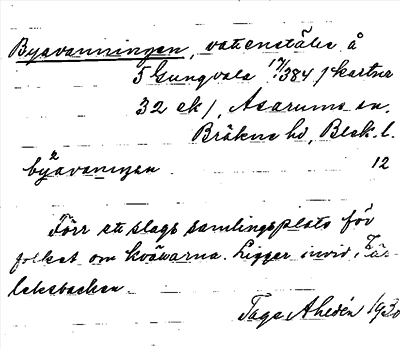 Byavanningen, vattenställe å
5 Gungvala 17/384 / kartne
32 ek /, Asarums sn.
Bräkne hd, Blek. l.
byavaningen 12
Förr ett slags samlingsplats för
folket om kvällarna. Ligger invid, Fär-
leksbacken.
Tage Ahedén 1930